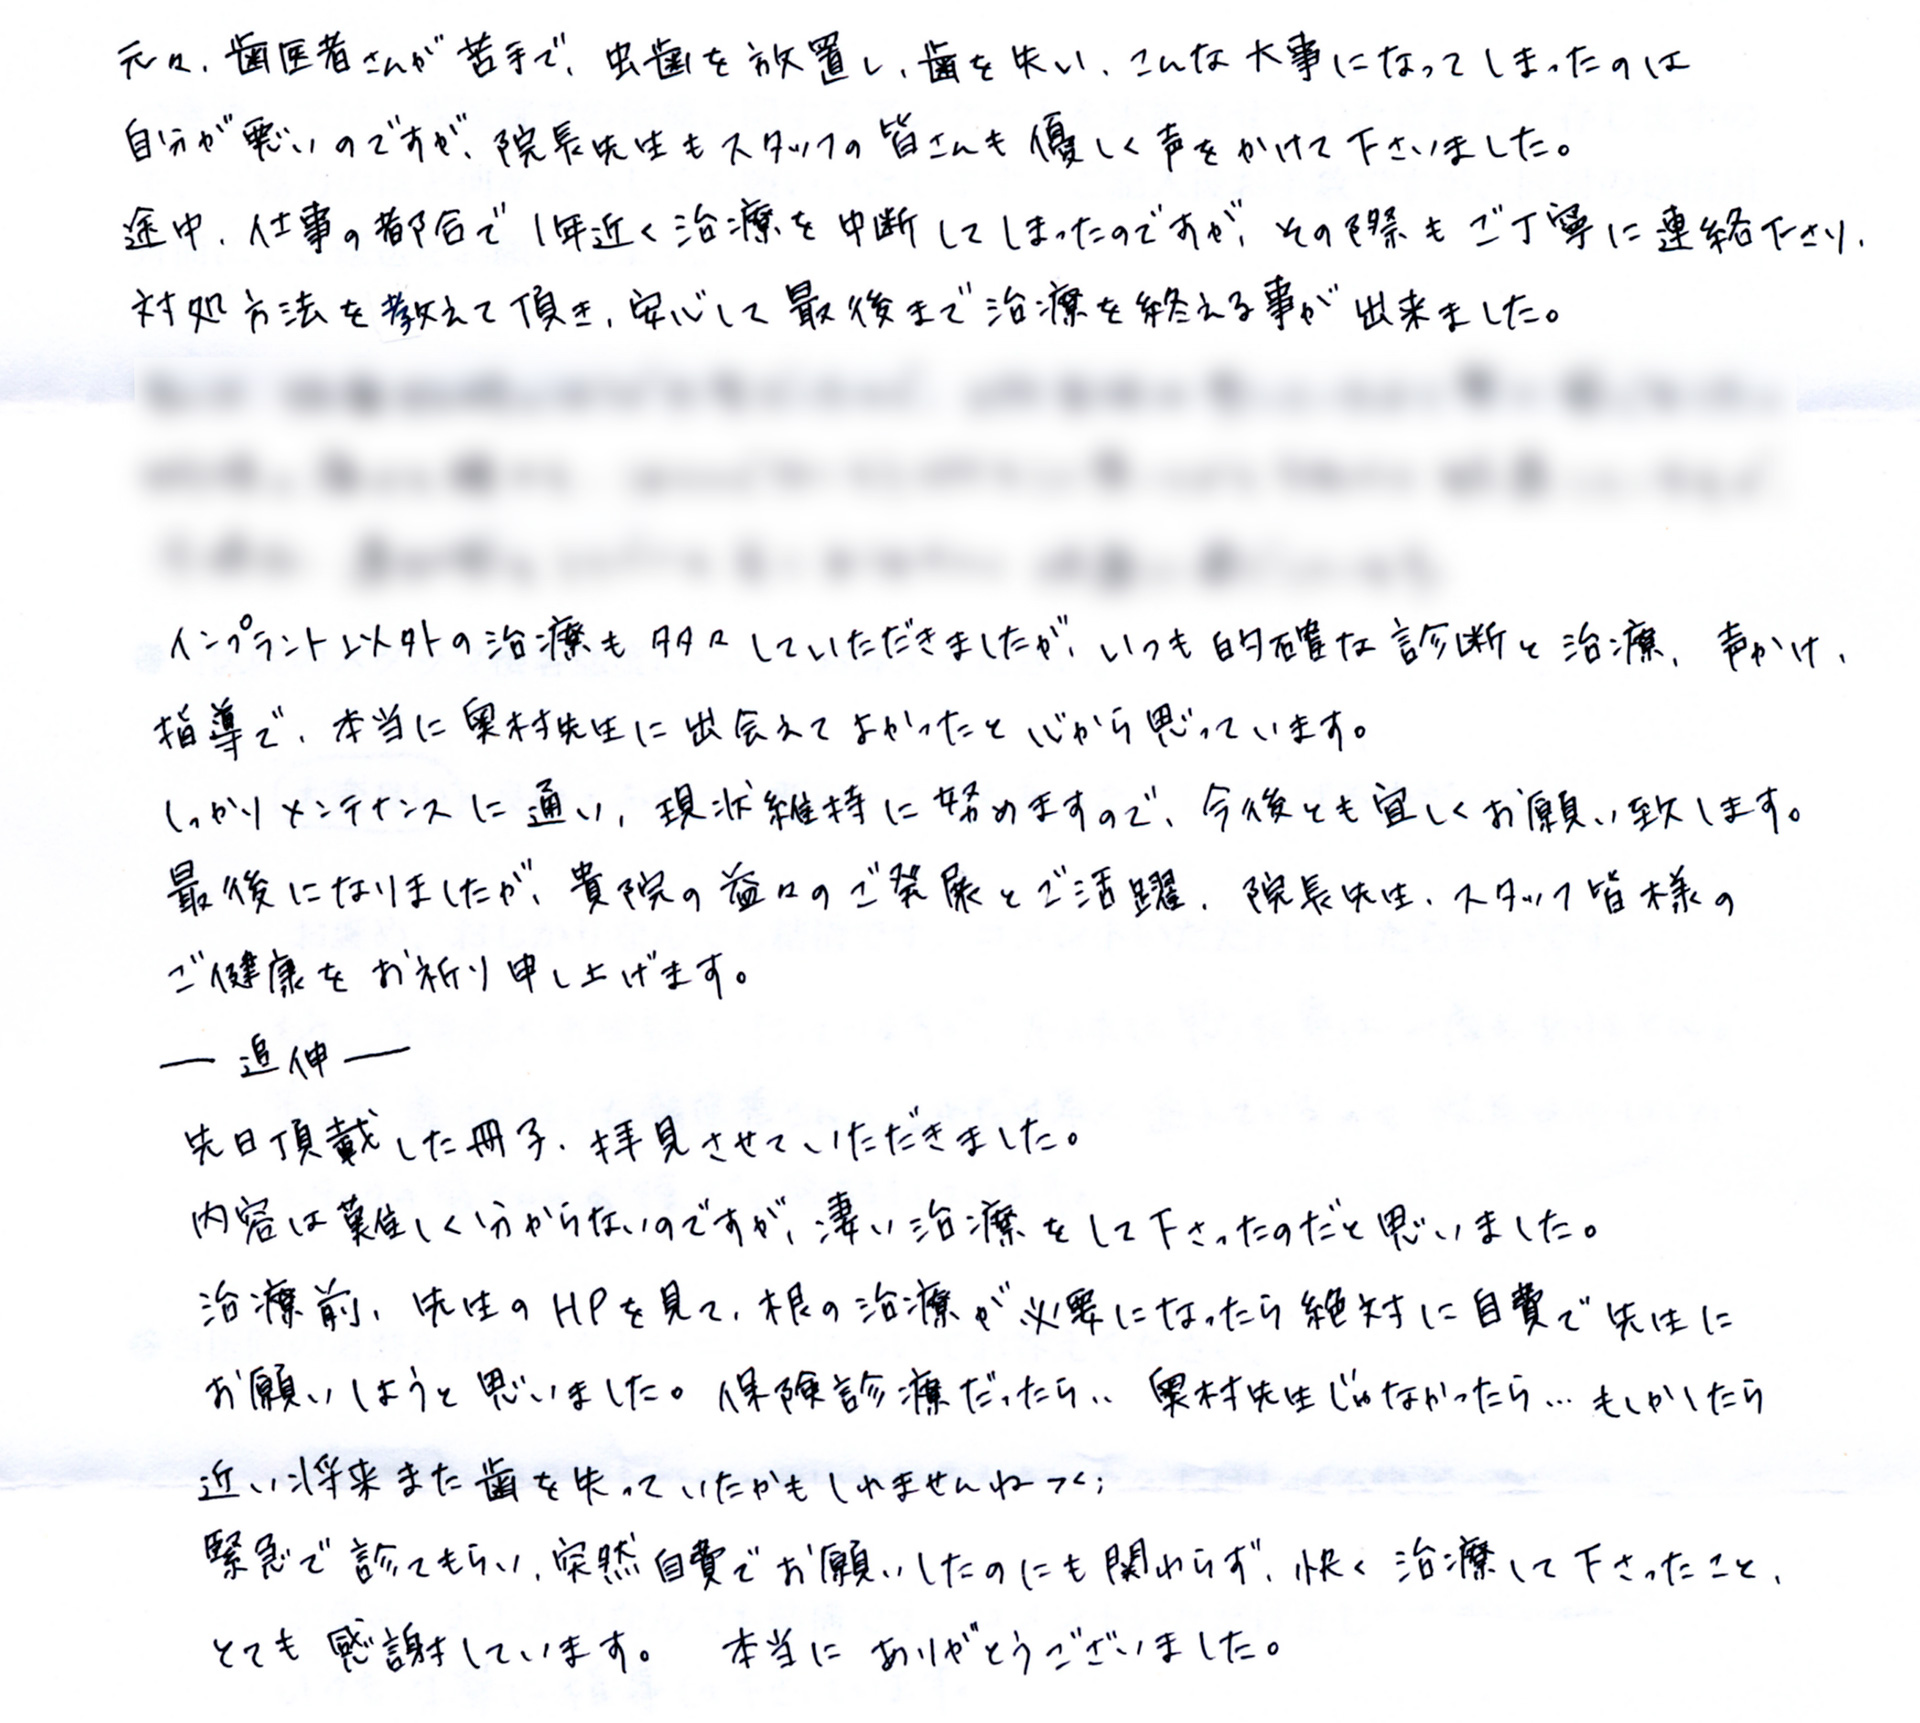 元々、歯医者さんが苦手で、虫歯を放置し、歯を失い、こんな大事になってしまったのは
自分が悪いのですが、院長先生もスタッフの皆さんも優しく声をかけて下さいました。
途中、仕事の都合で1年近く治療を中断してしまったのですが、その際もご丁寧に連絡下さり、
対処方法を教えて頂き、安心して最後まで治療を終える事が出来ました。
インプラント以外の治療も多々していただきましたが、いつも的確な診断と治療、声かけ、
指導で、本当に奥村先生に出会えてよかったと心から思っています。
しっかりメンテナンスに通い、現状維持に努めますので、今後とも宜しくお願い致します。
最後になりましたが、貴院の益々のご発展とご活躍、院長先生、スタッフ皆様の
ご健康をお祈り申し上げます。
― 追伸 ―
先日頂戴した冊子、拝見させていただきました。
内容は難しく分からないのですが、凄い治療をして下さったのだと思いました。
治療前、先生のHPを見て、根の治療が必要になったら絶対に自費で先生に
お願いしようと思いました。保険診療だったら‥ 奥村先生じゃなかったら… もしかしたら
近い将来また歯を失っていたかもしれませんね
緊急で診てもらい、突然自費でお願いしたのにも関わらず、快く治療して下さったこと、
とても感謝しています。 本当にありがとうございました。